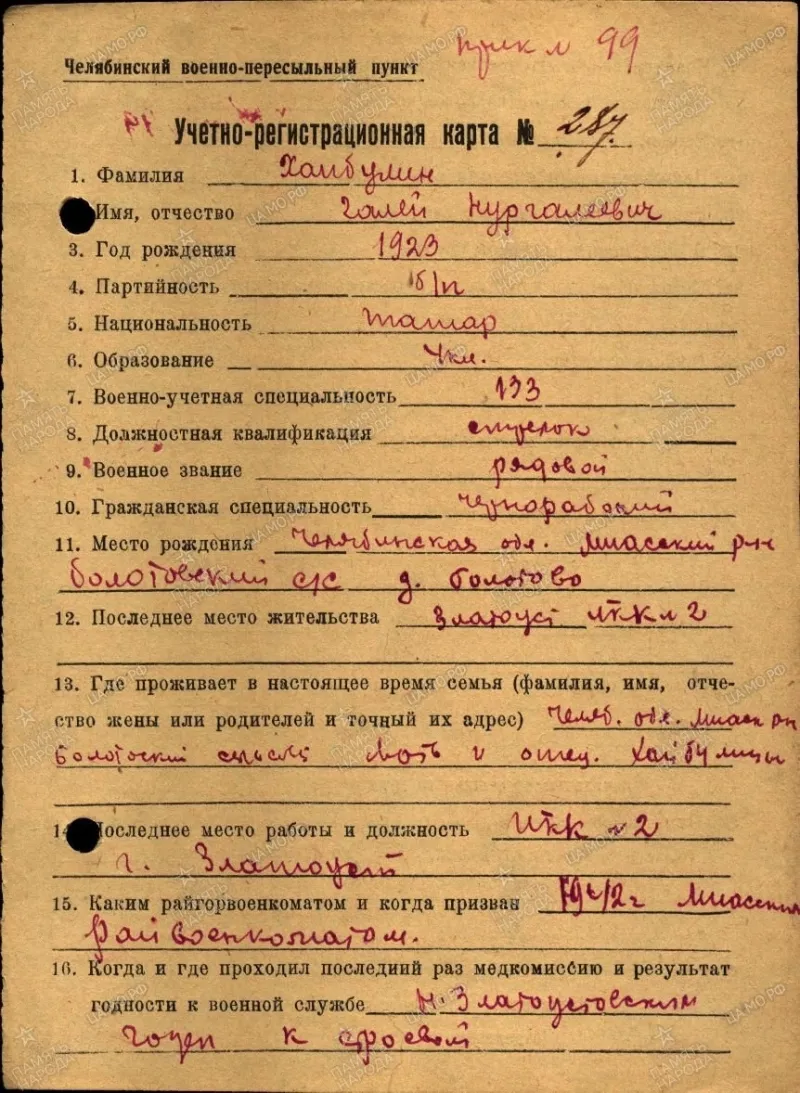 прик м 99
Челябинский военно-пересыльный пункт
Учетно-регистрационная карта № 287.
1. Фамилия Хайбулин
Имя, отчество Галей Нургалеевич
3. Год рождения 1923
4. Партийность б/п
5. Национальность татар
6. Образование 4 кл.
7. Военно-учетная специальность 133
8. Должностная квалификация стрелок
9. Военное звание рядовой
10. Гражданская специальность чернорабочий
11. Место рождения Челябинская обл. Миасский р-н
Болотовский с/с д. Болотово
12. Последнее место жительства Златоуст 2
13. Где проживает в настоящее время семья (фамилия, имя, отче-
ство жены или родителей и точный их адрес) Челяб. обл. Миас рн
мать и отец. Хайбулины
14 Последнее место работы и должность 2
г. Златоуст
15. Каким райгорвоенкоматом и когда призван 1942 г Миасским
Райвоенкоматом.
16. Когда и где проходил последний раз медкомиссию и результат
годности к военной службе Златоустовским
годен к строевой